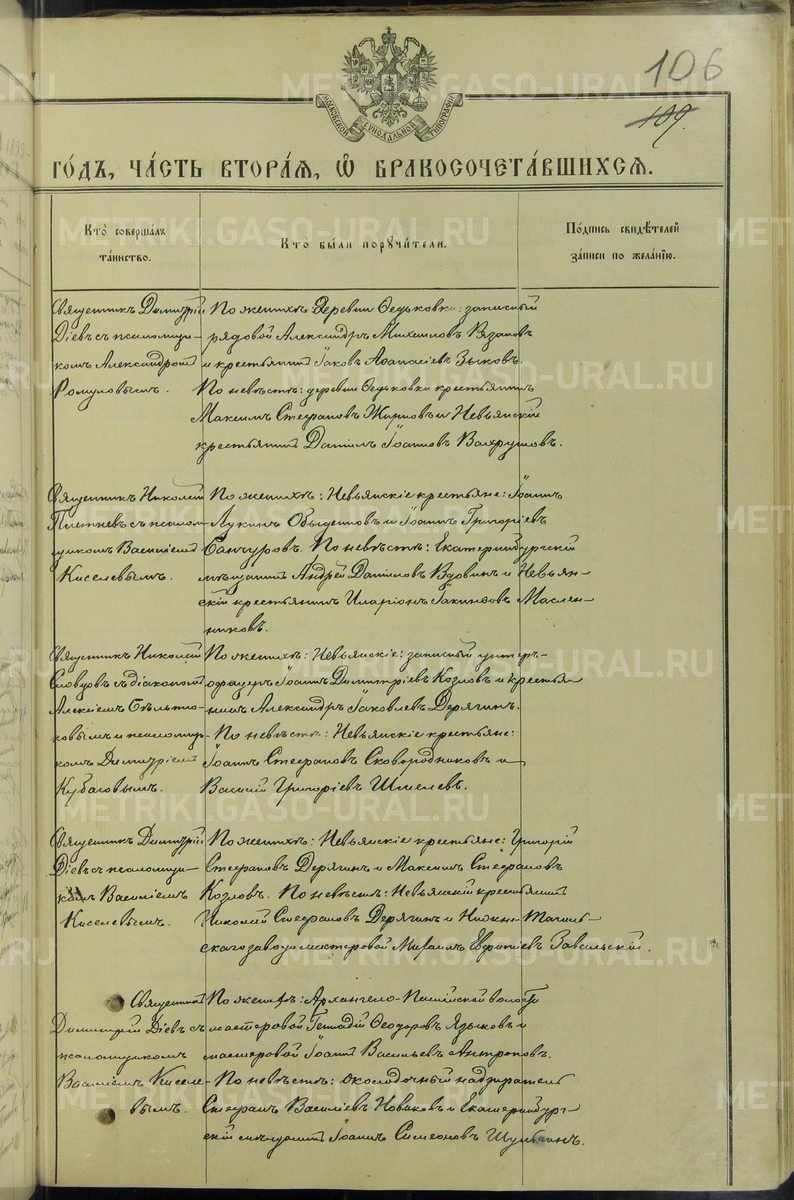 106
109.
МОСКОВСКОЙ СѴНОДАЛЬНОЙ ТИПОГРАФІИ
ГО́ДЪ, ЧА́СТЬ ВТОРА́Я, Ѽ БРАКОСОЧЕТА́ВШИХСѦ.
Кто̀ соверша́лъ
та́инство.
Кто̀ бы́ли порꙋчи́тели.
По́дпись свидѣ́телей
за́писи по жела́нїю.
Священникъ Димитрій
Діевъ съ псаломщи-
комъ Александромъ
Ромуловымъ.
По женихѣ: деревни Ѳедьковки: запасный
рядовой Александръ Михаиловъ Вязановъ
и крестьянинъ Іаковъ Аѳанасіевъ Зыковъ.
По невѣстѣ: деревни Ѳедьковки крестьянинъ
Максимъ Стефановъ Жирновъ и Невьянскій
крестьянинъ Даніилъ Іоанновъ Вахрушовъ.
Священникъ Николай
Плетневъ съ псалом-
щикомъ Василіемъ
Киселевымъ.
По женихѣ: Невьянскіе крестьяне: Іоаннъ
Лукинъ Обыденовъ и Іоаннъ Григоріевъ
Санчуровъ. По невѣстѣ: Екатеринбургскій
мѣщанинъ Андрей Даниловъ Вдовинъ и Невьян-
скій крестьянинъ Иларіонъ Іакинѳовъ Маслен-
никовъ.
Священникъ Николай
Словцовъ съ діакономъ
Алексіемъ Бѣльтю-
ковымъ и псаломщи-
комъ Димитріемъ
Кубасовымъ.
По женихѣ: Невьянскіе: запасный унтеръ-
офицеръ Іоаннъ Димитріевъ Козловъ и крестья-
нинъ Александръ Іаковлевъ Дерягинъ.
По невѣстѣ: Невьянскіе крестьяне:
Іоаннъ Стефановъ Сковородниковъ и
Василій Григоріевъ Шмелевъ.
Священникъ Димитрій
Діевъ съ псаломщи-
комъ Василіемъ
Киселевымъ.
По женихѣ: Невьянскіе крестьяне: Григорій
Стефановъ Дерягинъ и Максимъ Стефановъ
Козловъ. По невѣстѣ: Невьянскій крестьянинъ
Николай Стефановъ Дерягинъ и Нижне-Тагиль-
скаго завода мастеровой Михаилъ Завальскій.
Священникъ
Димитрій Діевъ съ
псаломщикомъ
Василіемъ Киселе-
вымъ.
По женихѣ: Архангело-Пашійской волости
мастеровой Геннадій Ѳеодоровъ Языковъ и
мастеровой Іоаннъ Васильевъ Антроповъ.
По невѣстѣ: околодочный надзиратель
Стефанъ Василіевъ Новаковъ и Екатеринбург-
скій мѣщанинъ Іоаннъ Симеоновъ
METRIKI.GASO-URAL.RU